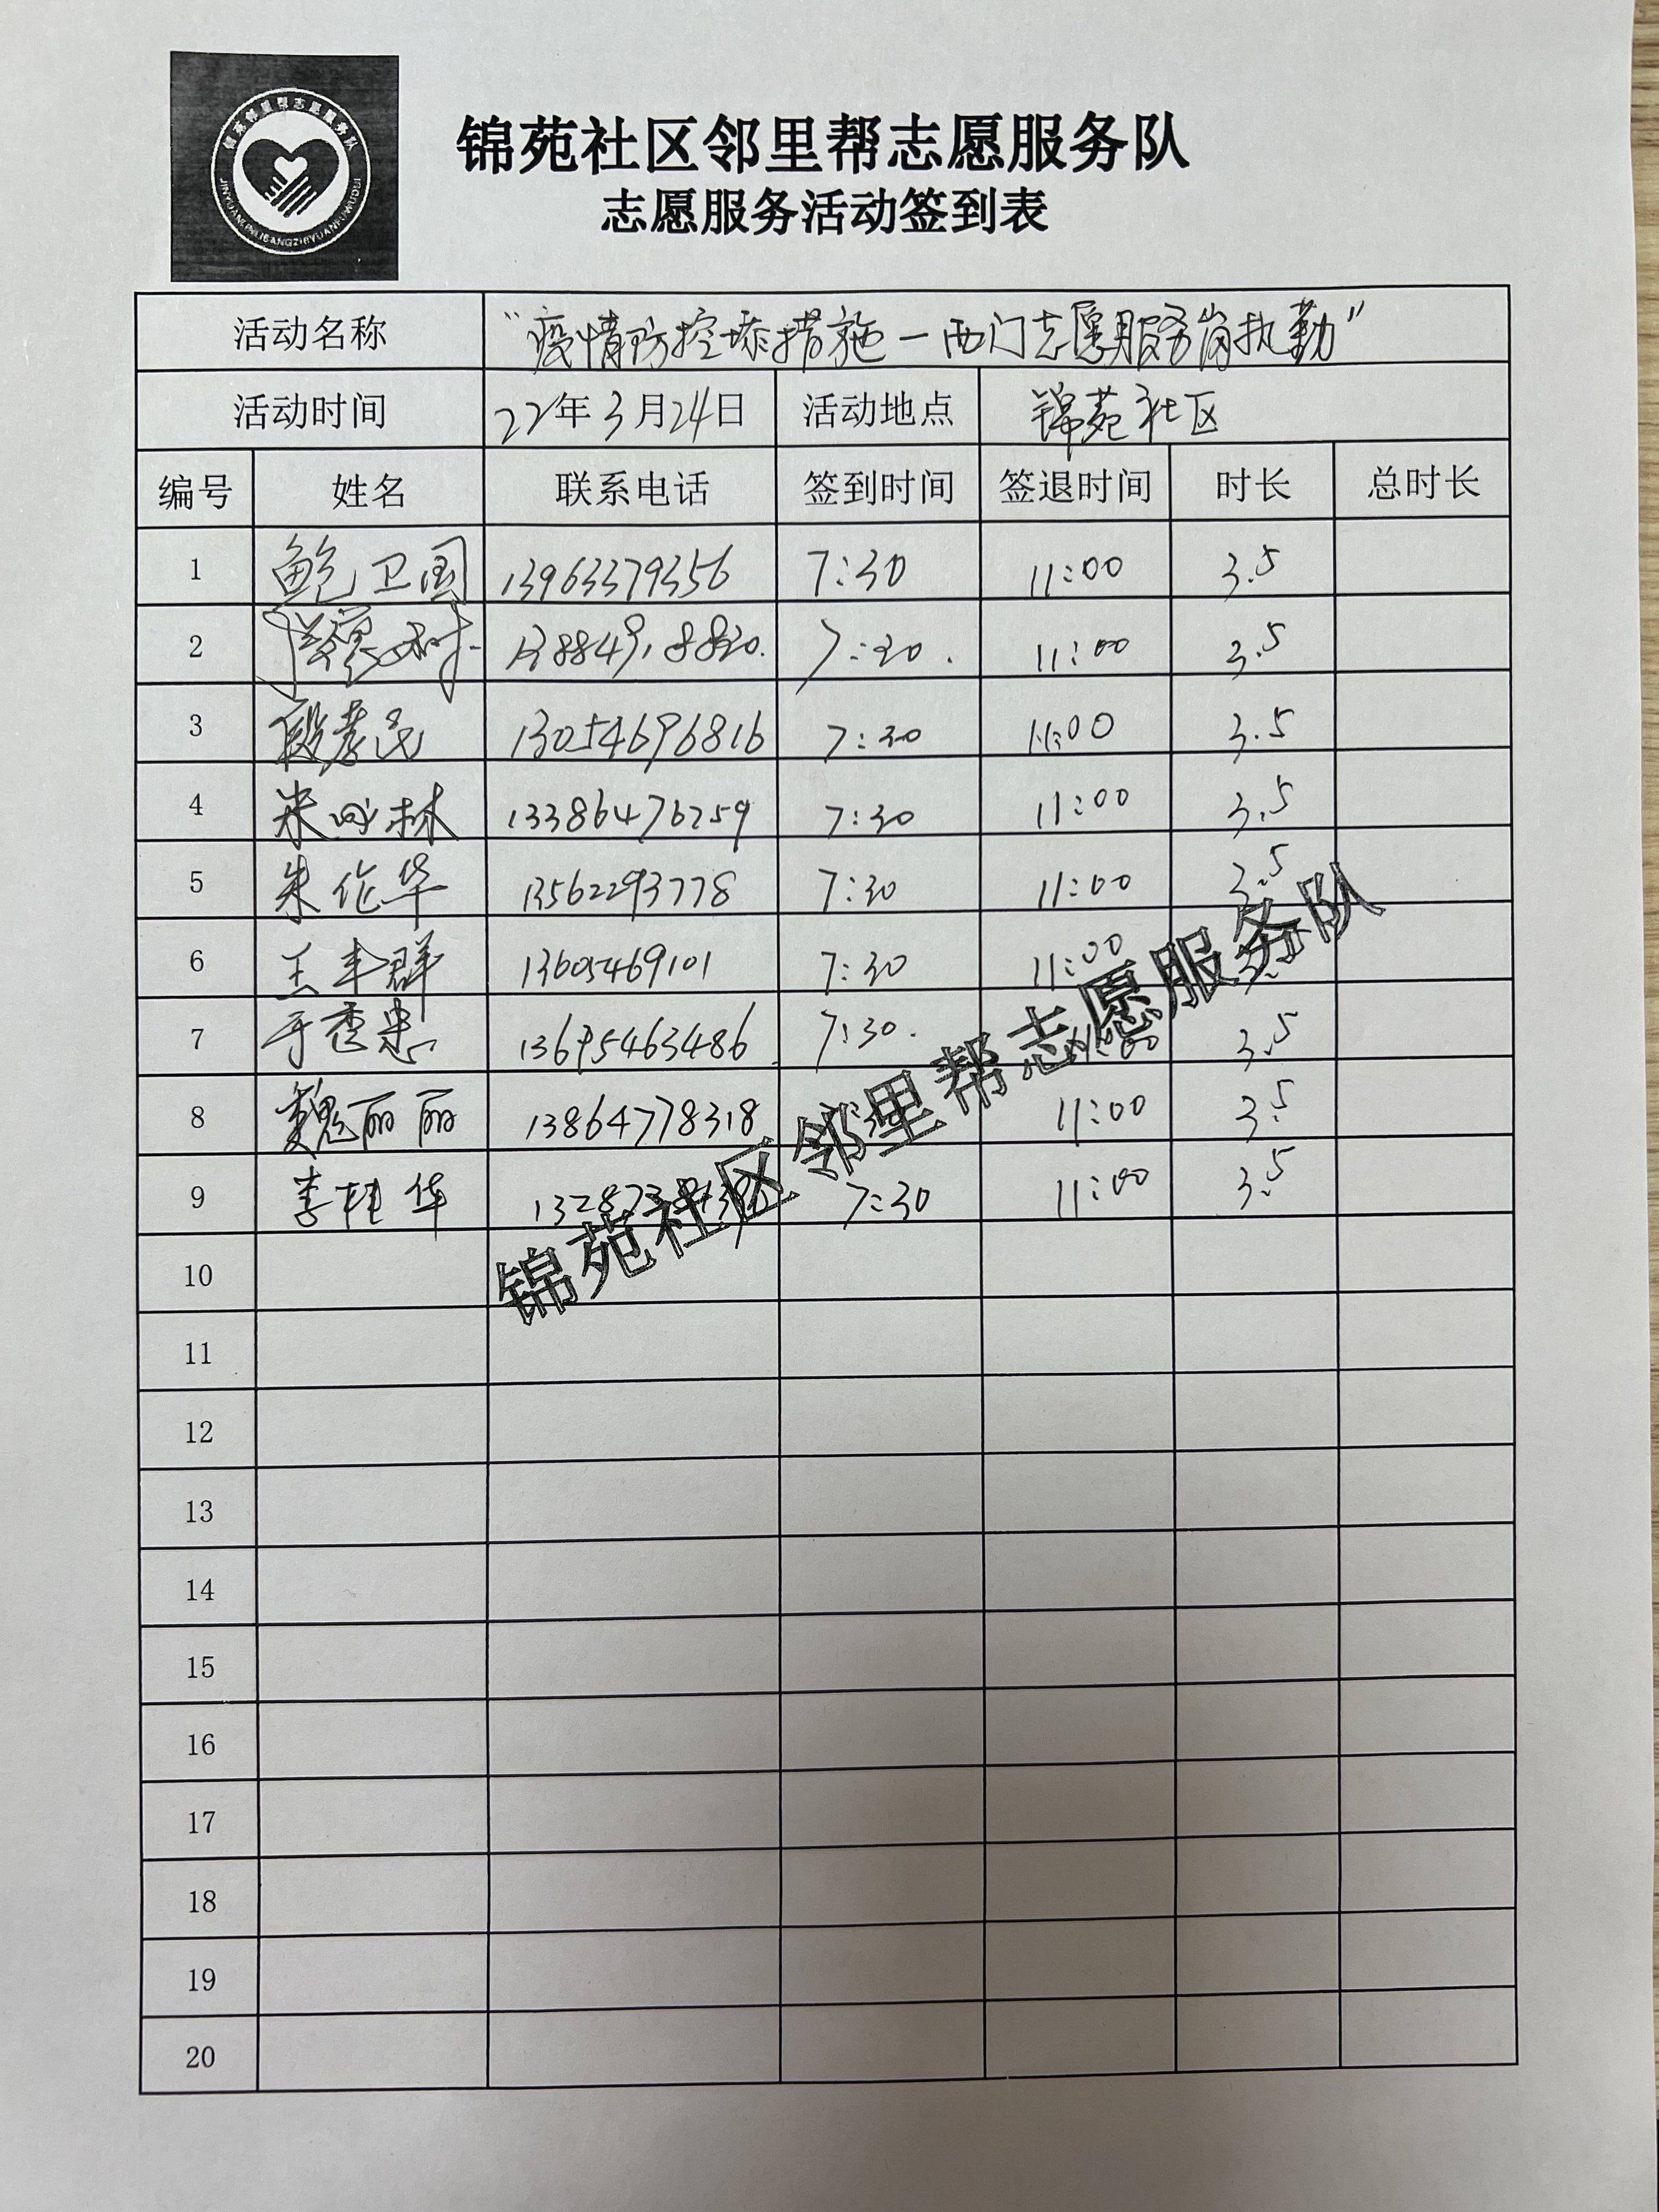 锦苑邻里帮志愿服务队
锦苑社区邻里帮志愿服务队
志愿服务活动签到表
活动名称 “疫情防控添措施一西门志愿服务岗执勤”
活动时间 22年3月24日 活动地点 锦苑社区
编号 姓名 联系电话 签到时间 签退时间 时长 总时长
1 鲍卫国 13963379356 7:30 11:00 3.5
2 7:30. 11:00 3.5
3 段孝民 13054696816 7:30 11:00 3.5
4 13386476259 7:30 11:00 3.5
5 朱作华 13562293778 7:30 11:00 3.5
6 王丰群 13605469101 7:30 11:00
7 于秀忠 13695463486 7:30. 3.5
8 魏丽丽 13864778318 11:00 3.5
9 李桂华 7:30 11:00 3.5
锦苑社区邻里帮志愿服务队
10
11
12
13
14
15
16
17
18
19
20